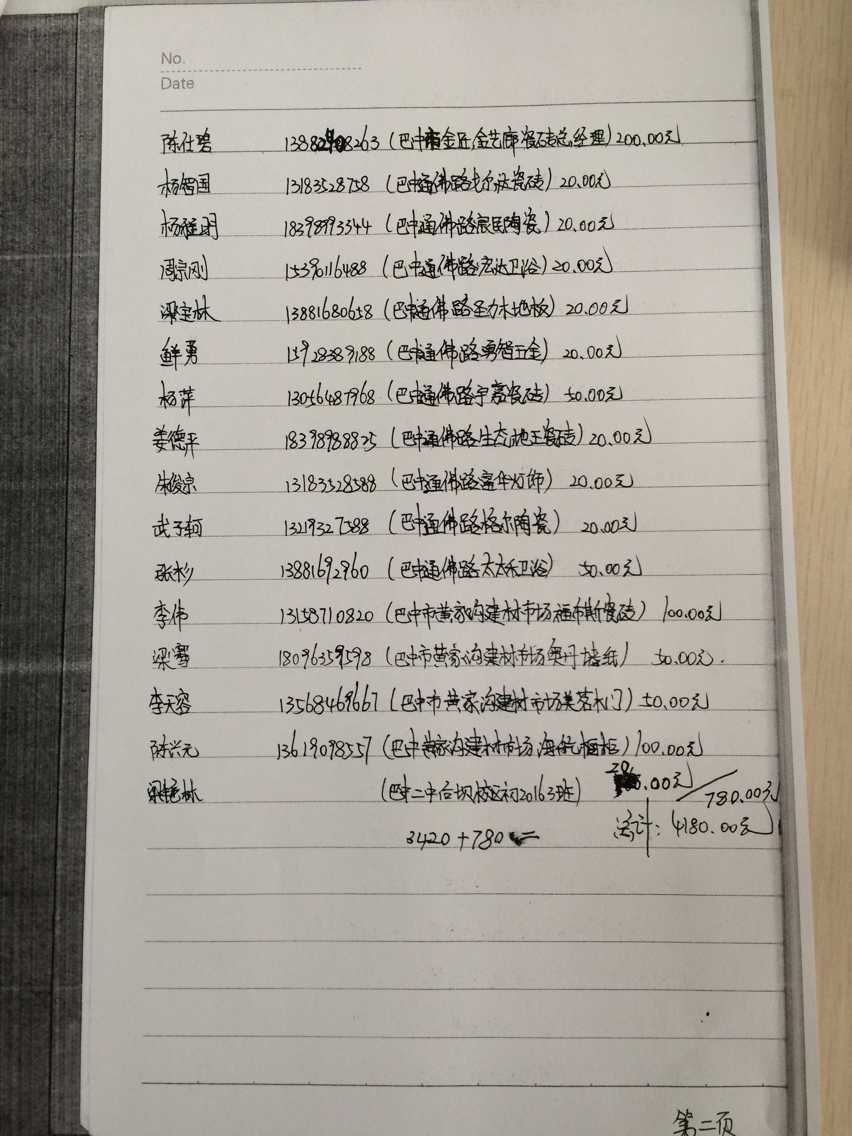 No.
Date
陈仕碧 13882908263 (巴中市金匠金艺廊瓷砖总经理) 200.00元
杨智国 13183528758 (巴中通佛路 瓷砖) 20.00元
杨 明 18398993344 (巴中通佛路宸民陶瓷) 20.00元
周宗刚 15390116488 (巴中通佛路宏达卫浴) 20.00元
梁宝林 13881680658 (巴中通佛路圣力木地板) 20.00元
鲜勇 15928389188 (巴中通佛路勇智五金) 20.00元
杨萍 13056487968 (巴中通佛路宇嘉瓷砖) 50.00元
姜德平 18398988825 (巴中通佛路生态地王瓷砖) 20.00元
朱俊宗 13183528588 (巴中通佛路富华灯饰) 20.00元
武子轲 13219327588 (巴中通佛路格尔陶瓷) 20.00元
张杉 13881692960 (巴中通佛路太太乐卫浴) 50.00元
李伟 13158710820 (巴中市黄家沟建材市场福布斯瓷砖) 100.00元
梁骞 18096359598 (巴中市黄家沟建材市场奥丹墙纸) 50.00元.
李天容 13568469667 (巴中市黄家沟建材市场美茗木门) 50.00元
陈兴元 13619098557 (巴中黄家沟建材市场海航橱柜) 100.00元
梁艳林 (巴中二中后坝校区初2016 3班) 20.00元 / 780.00元
3420+780= 总计: 4180.00元
第二页